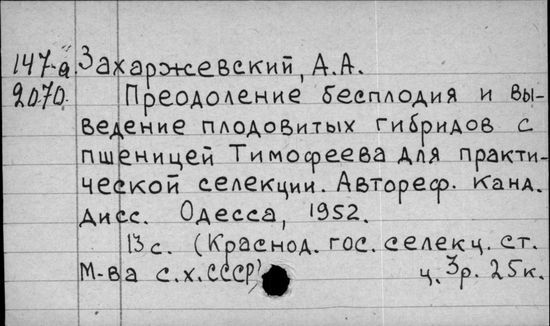 147-а. Захаржевский, А.А.
2070. Преодоление бесплодия и вы-
ведение плодовитых гибридов с
пшеницей Тимофеева для практи-
ческой селекции. Автореф. канд.
дисс. Одесса, 1952.
13 с. (Краснод. гос. селекц. ст.
М-ва с.х.СССР)
ц. 3р. 25к.